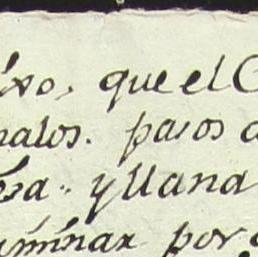 ixo, que el C
malos. pasos a
osa.. y llana
uminar por